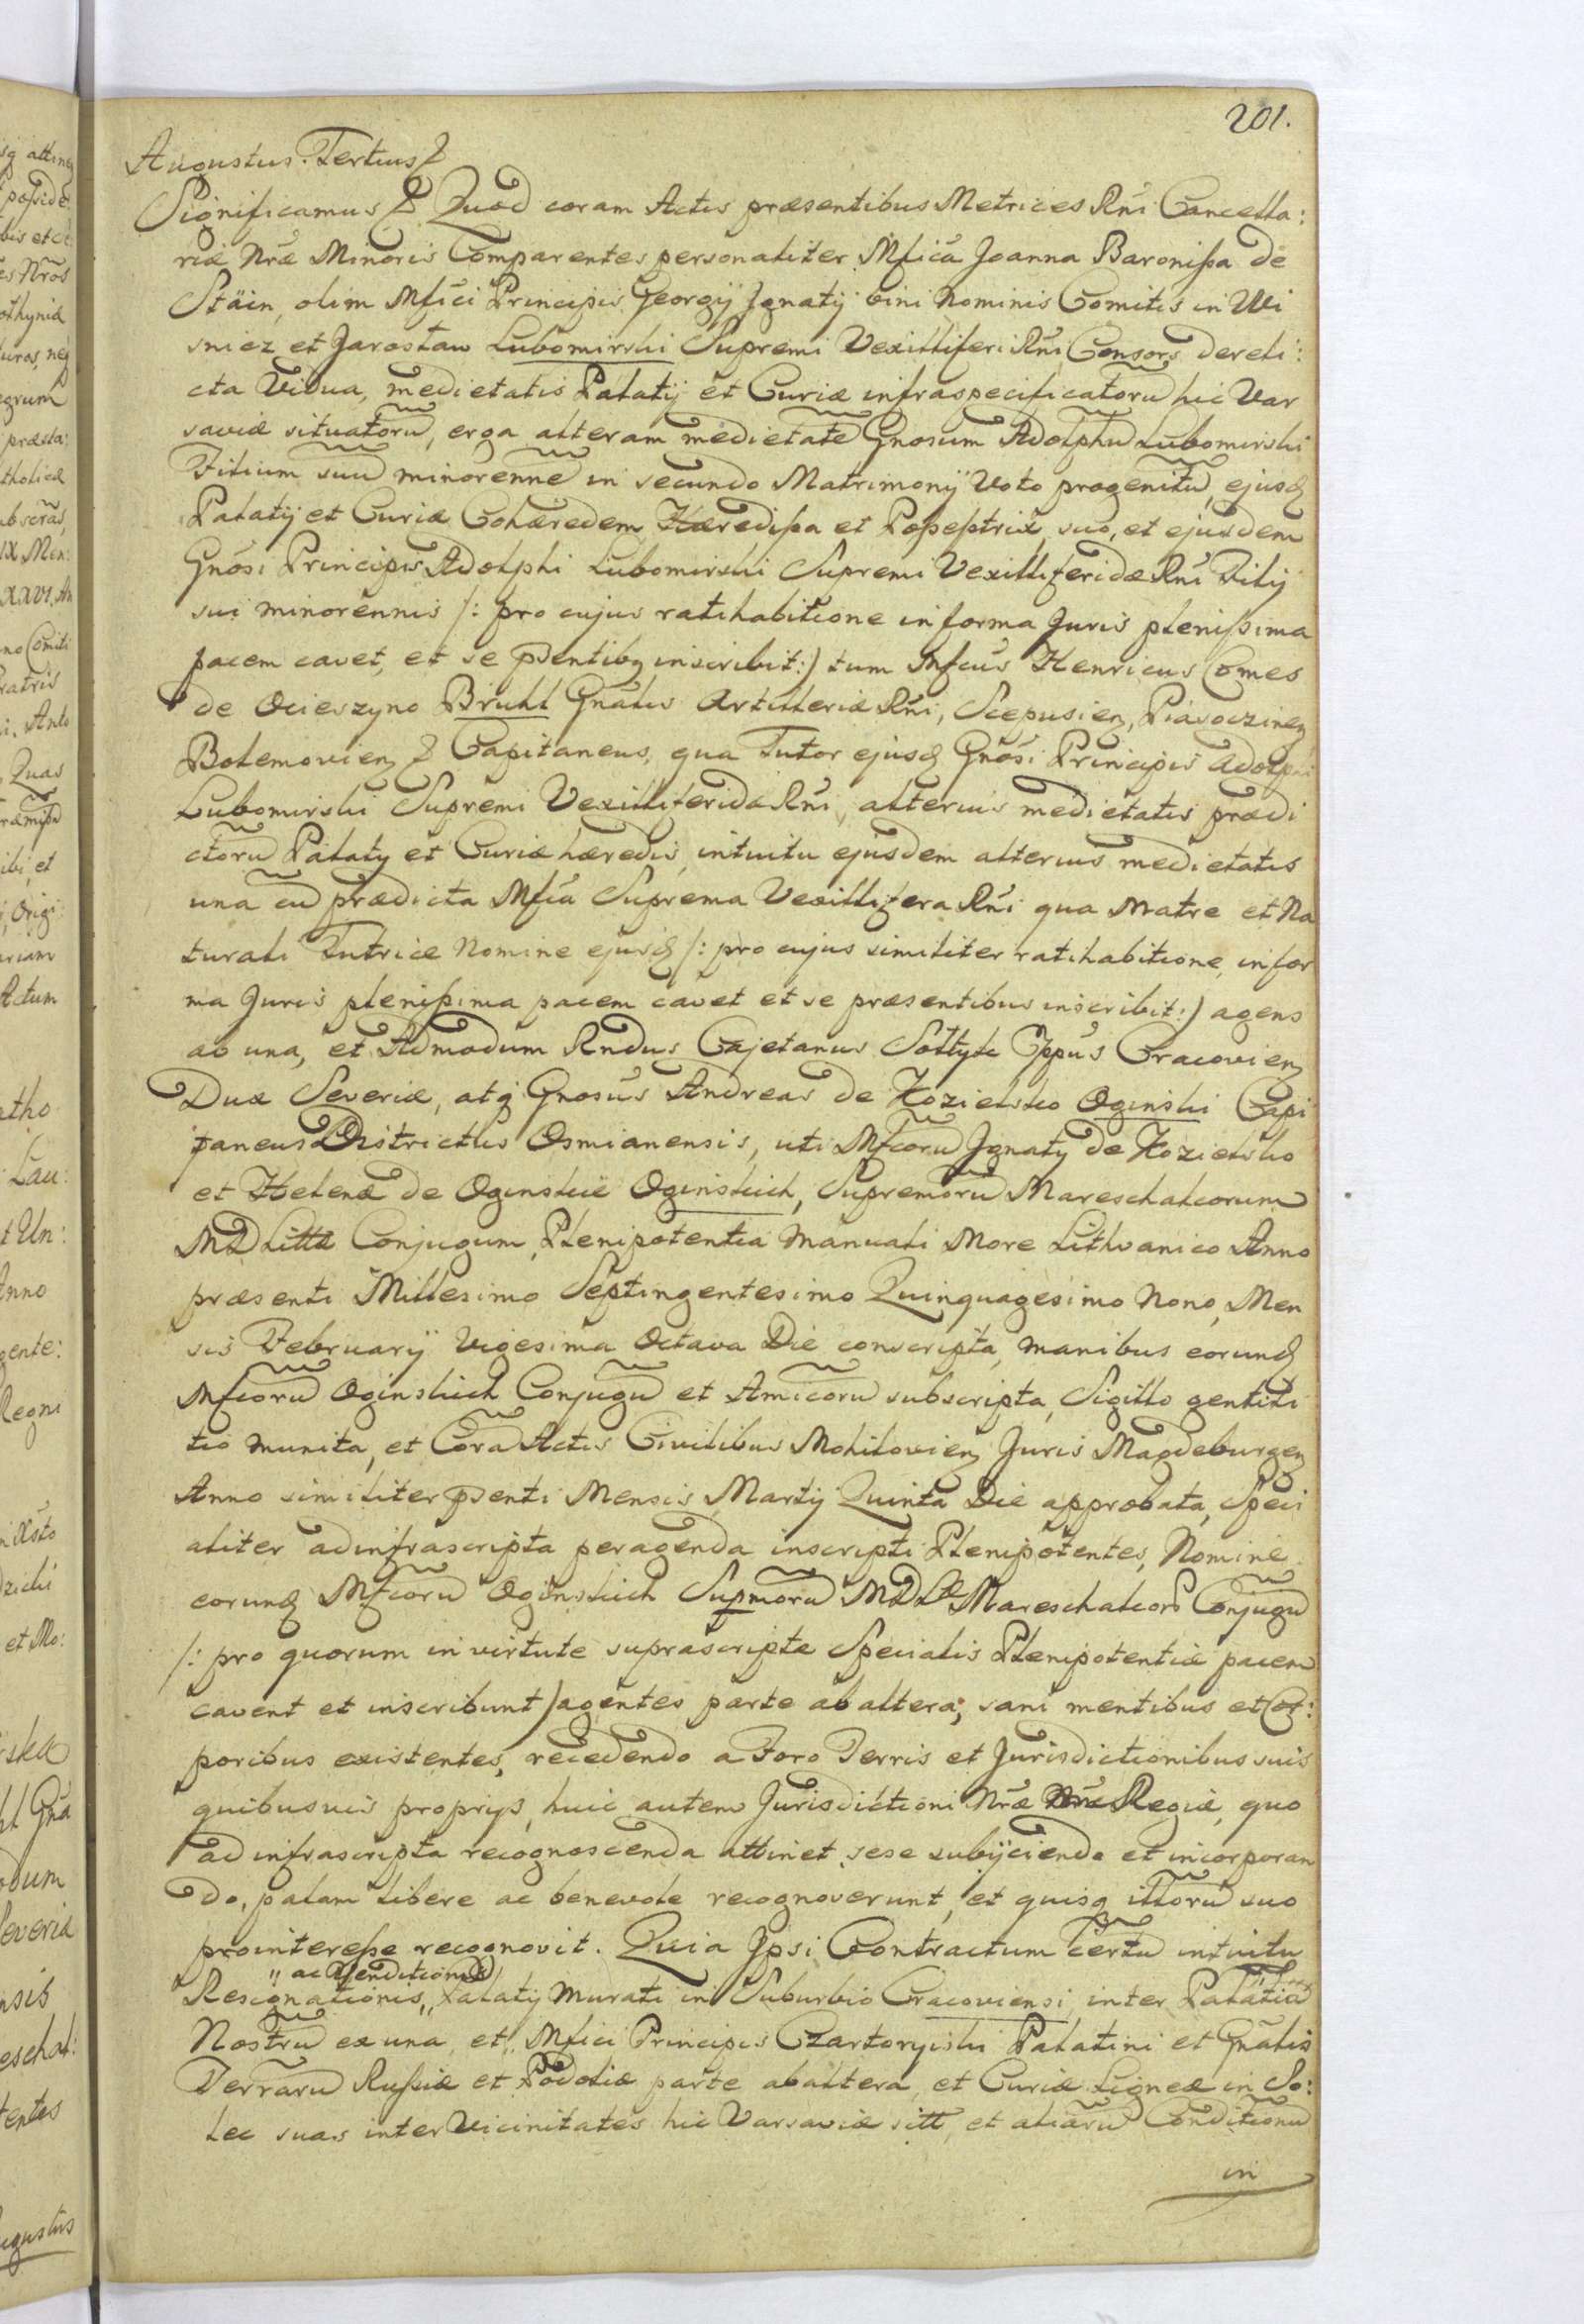 201.
Augustus Tertius &
Significamus & Quod coram Actis præsentibus Metrices Rñi Cancella:
riæ Nræ Minoris Comparentes personaliter Mfica Joanna Baronissa de
Stäin, olim Mfici Principis Georgij Ignatij bini Nominis Comitis in Wi
snicz et Jarosław Lubomirski Supremi Vexilliferi Rñi Consors dereli:
cta Vidua, medietatis Palatij et Curiæ infraspecificatorũ hic Var
saviæ situatorũ, erga alteram medietatẽ Gnosum Adolphũ Lubomirski
Filium suũ minorennẽ in secundo Matrimonij Voto progenitũ, ejusq
Palatij et Curiæ Cohæredem Hæredissa et Possestrix, suo, et ejusdem
Gnosi Principis Adolphi Lubomirski Supremi Vexilliferidæ Rñi Filij
sui minorennis /: pro cujus ratihabitione in forma Juris plenissima
pacem cavet, et se pñtibq inscribit :/ tum Mfcus Henricus Comes
de Ocieszyno Brühl Gnalis Artilleriæ Rñi, Scepusien, Piasoczinen
Bolemovien & Capitaneus, qua Tutor ejusq Gnosi Principis Adolphi
Lubomirski Supremi Vexilliferidæ Rñi, alterius medietatis prædi
ctorũ Palatij et Curiæ hæredis, intuitu ejusdem alterius medietatis
una cũ prædicta Mfica Suprema Vexillifera Rñi qua Matre et Na
turali Tutrice Nomine ejusq /: pro cujus similiter ratihabitione, in for
ma Juris plenissima pacem cavet et se præsentibus inscribit :/ agens
ab una, et Admodum Rndus Cajetanus Sołtyk Eppus Cracovien
Dux Severiæ, atq Gnosus Andreas de Kozielsko Oginski Capi
taneus Districtus Osmianensis, uti Mfcorũ Ignatij de Kozielsko
et Helenæ de Oginskie Oginskich, Supremorũ Mareschalcorum
MDLittæ Conjugum, Plenipotentia Manuali More Lithvanico Anno
præsenti Millesimo Septingentesimo Quinquagesimo Nono, Men
sis February Vigesima Octava Die conscripta, manibus eorunq
Mfcorũ Oginskich Conjugũ et Amicorũ subscripta, Sigillo gentili
tio munita, et Corã Actis Civilibus Mohilovien Juris Magdeburgen
Anno similiter pñti Mensis Martij Quinta Die approbata, Speci
aliter ad infrascripta peragenda inscripti Plenipotentes, Nomine
eorunq Mfcorũ Oginskich Supmorũ MDL Mareschalcorũ Conjugũ
/: pro quorum in virtute suprascriptæ Specialis Plenipotentiæ pacem
cavent et inscribunt / agentes parte ab altera; sani mentibus et Cor:
poribus existentes, recedendo a Foro Terris et Jurisdictionibus suis
quibusvis proprijs, huic autem Jurisdictioni Nræ Regiæ, quo
ad infrascripta recognoscenda attinet sese subijciendo et incorporan
do, palam libere ac benevole recognoverunt, et quisq illorũ suo
prointeresse recognovit. Quia Ipsi Contractum certũ intuitu
" ac Venditionis
Resignationis,, Palatij Murati in Suburbio Cracoviensi inter Palatia
Nostrũ ex una, et Mfici Principis Czartoryiski Palatini et Gnalis
Terrarũ Russiæ et Podoliæ parte ab altera, et Curiæ Ligneæ in So:
lec suas inter Vicinitates hic Varsaviæ sitt, et aliarũ Conditionũ
in